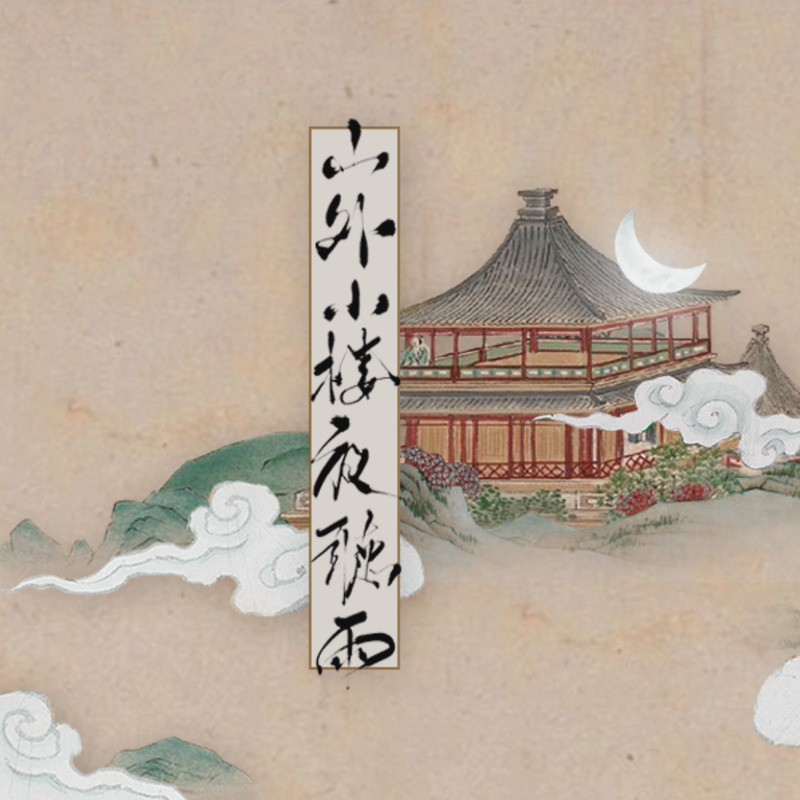 山外小楼夜聽雨